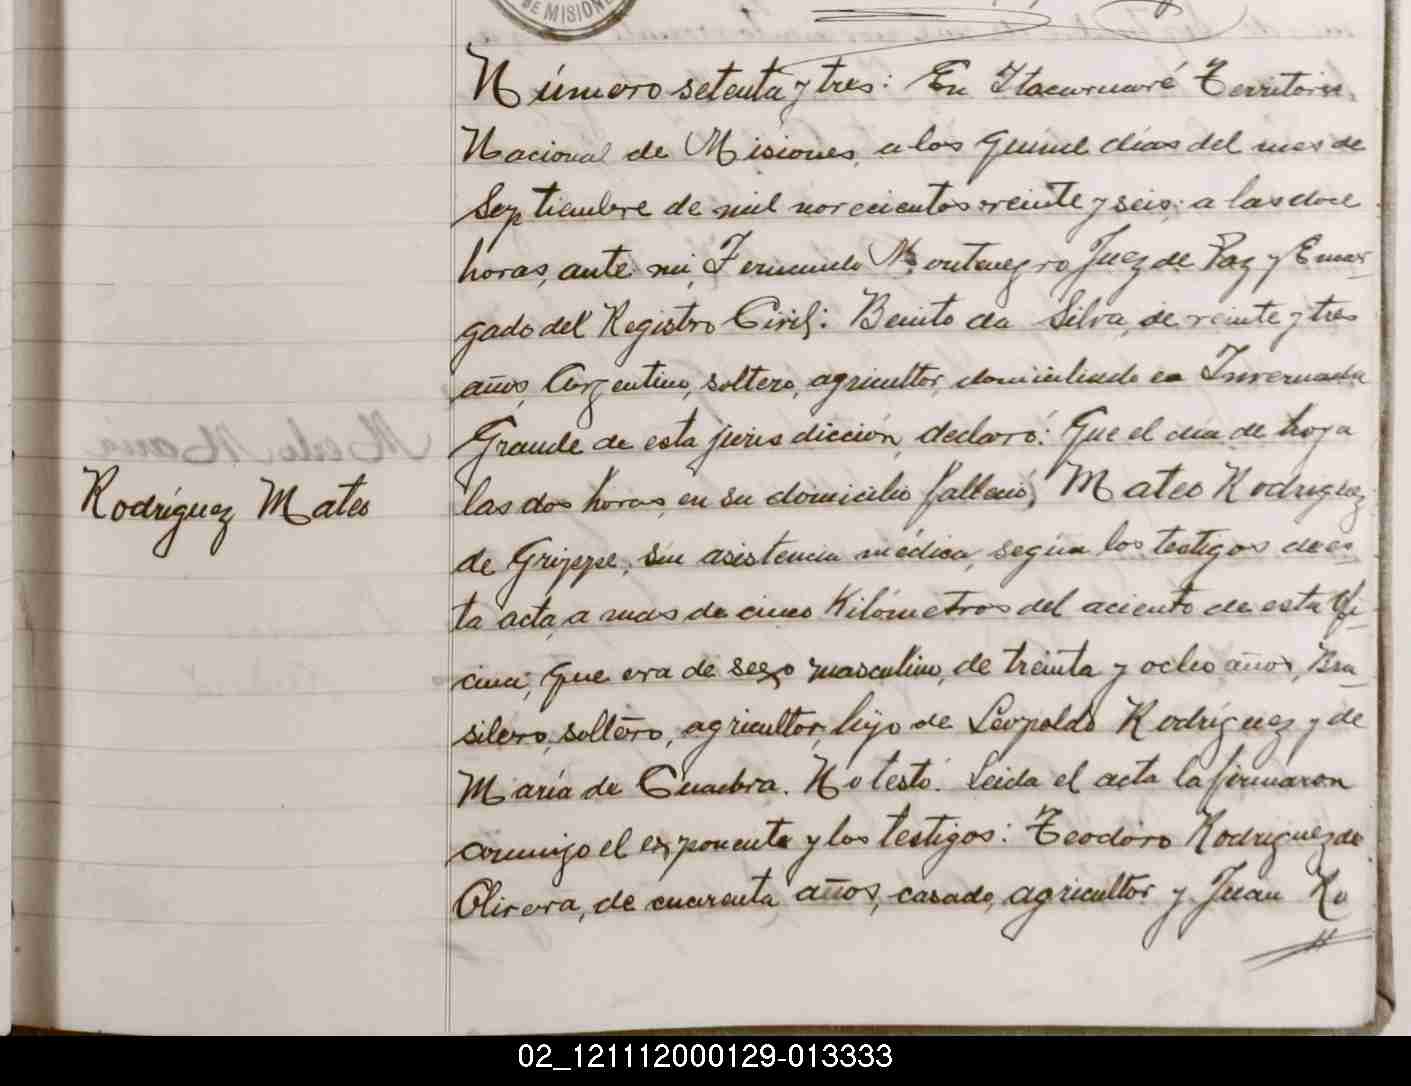 DE MISIONE
Número setenta y tres: En Itacaruaré Territorio
Nacional de Misiones, a los quince días del mes de
Septiembre de mil novecientos veinte y seis, a las doce
horas, ante mi, Fernando Montenegro Juez de Paz y Encar-
gado del Registro Civil: Benito da Silva, de veinte y tres
años, Argentino, soltero, agricultor, domiciliado en Invernada
Grande de esta jurisdicción, declaró: Que el día de hoy a
Rodríguez Mateo
las dos horas, en su domicilio falleció, Mateo Rodriguez
de Grippe, sin asistencia médica, según los testigos de es-
ta acta, a mas de cinco Kilómetros del aciento de esta Ofi-
cina; que era de sexo masculino, de treinta y ocho años, Bra-
silero, soltéro, agricultor, hijo de Leopoldo Rodríguez y de
María de Cuadra. No testó. Leida el acta la firmaron
conmigo el exponente y los testigos: Teodóro Rodriguez de
Olivera, de cuarenta años, casado, agricultor y Juan Ro
02_121112000129-013333